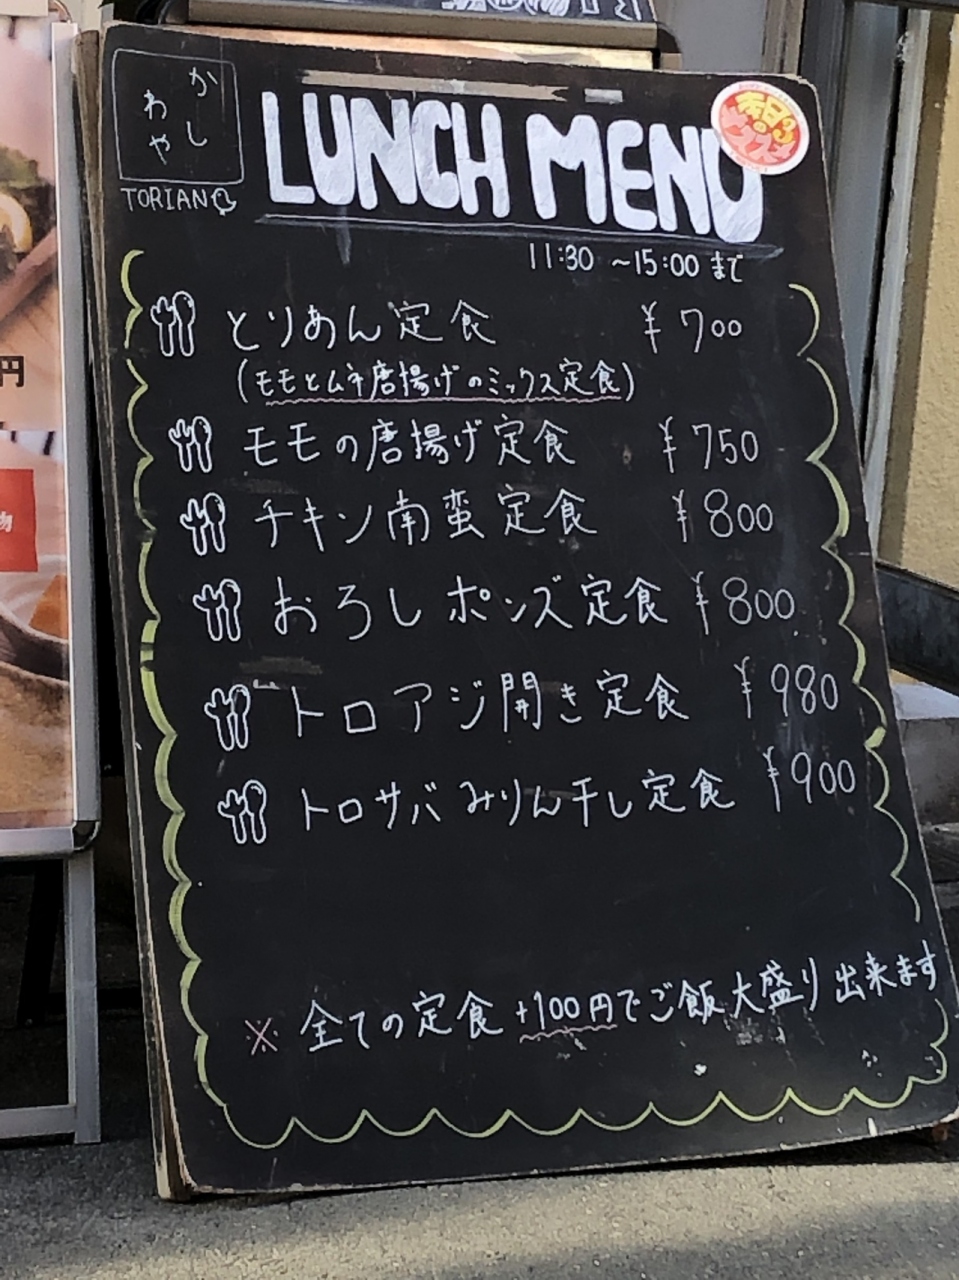 かし
わや
TORIAN
LUNCH MENU
本日の
オススメ
11:30 ~15:00 まで
とりあん定食 ¥700
(モモとムネ唐揚げのミックス定食)
モモの唐揚げ定食 ¥750
チキン南蛮定食 ¥800
おろしポンズ定食 ¥800
トロアジ開き定食 ¥980
トロサバみりん干し定食 ¥900
※ 全ての定食 +100円でご飯大盛り出来ます
円
物